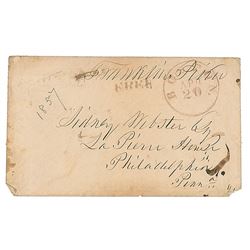 Franklin Pierce
FREE
BOSTON
20
1857
Sidney Webster Esq
La Pierre House
Philadelphia
Penn